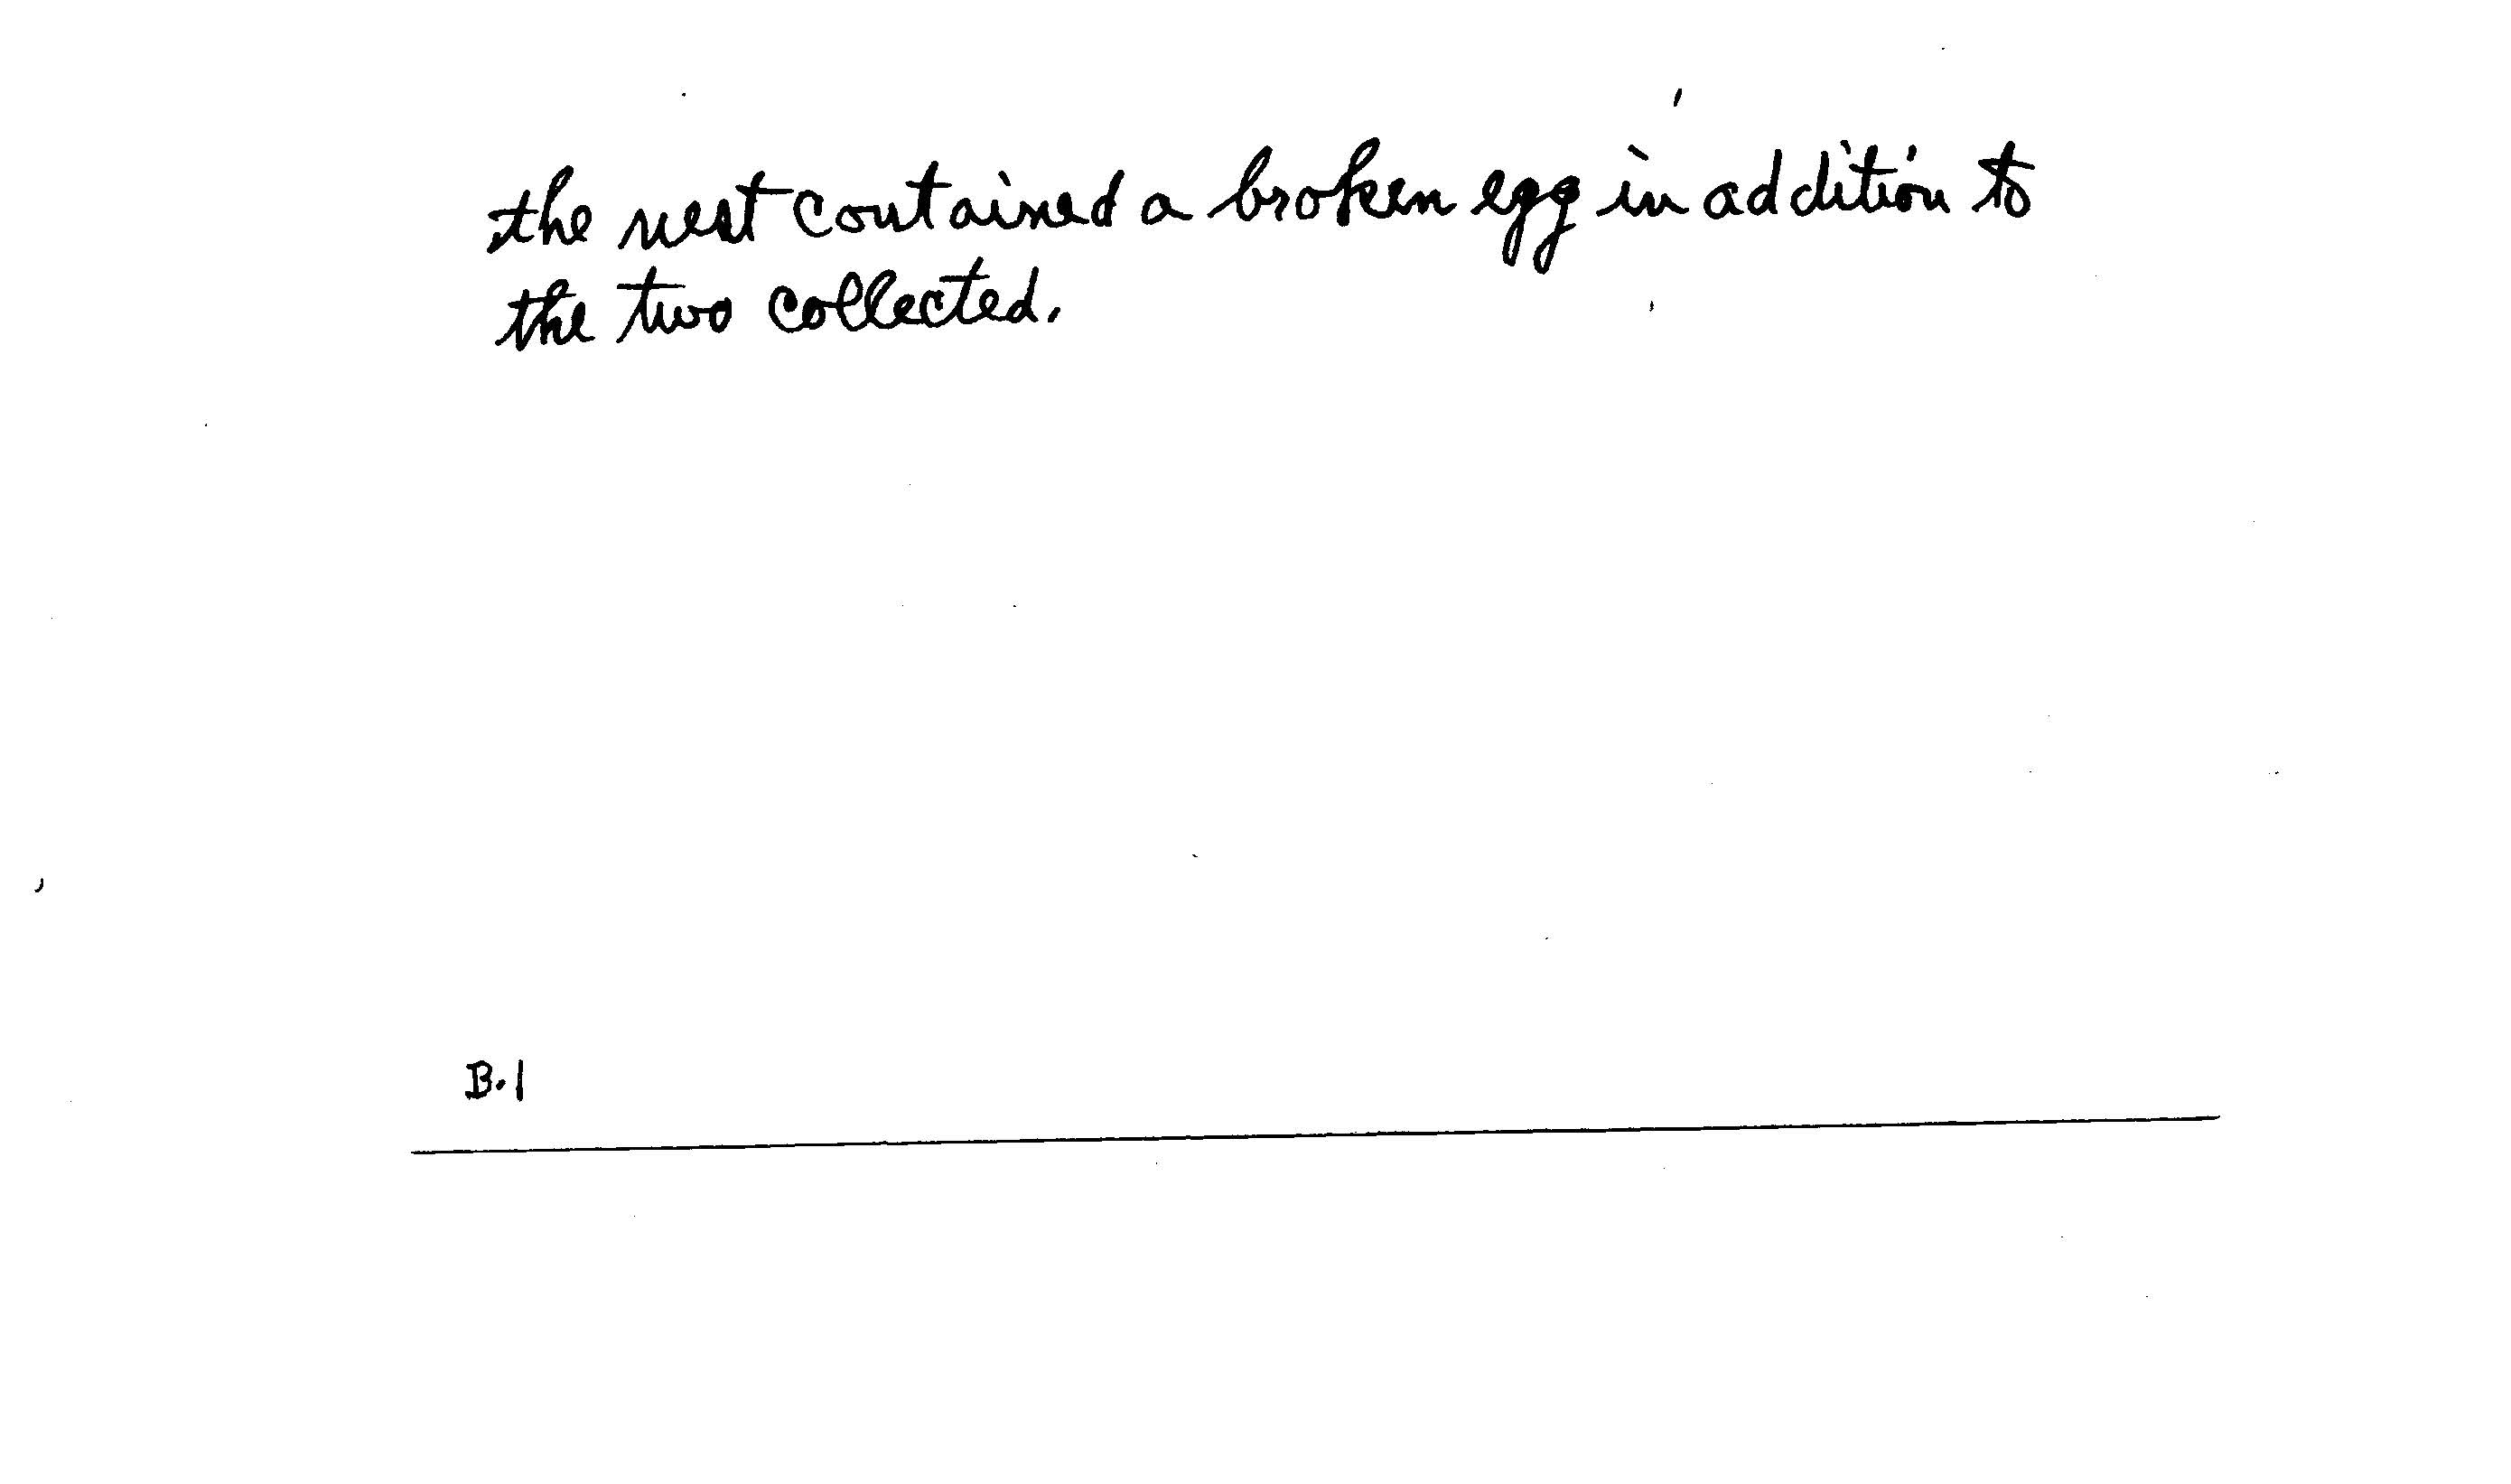 the nest contained a broken egg in addition to
the two collected.
B.1